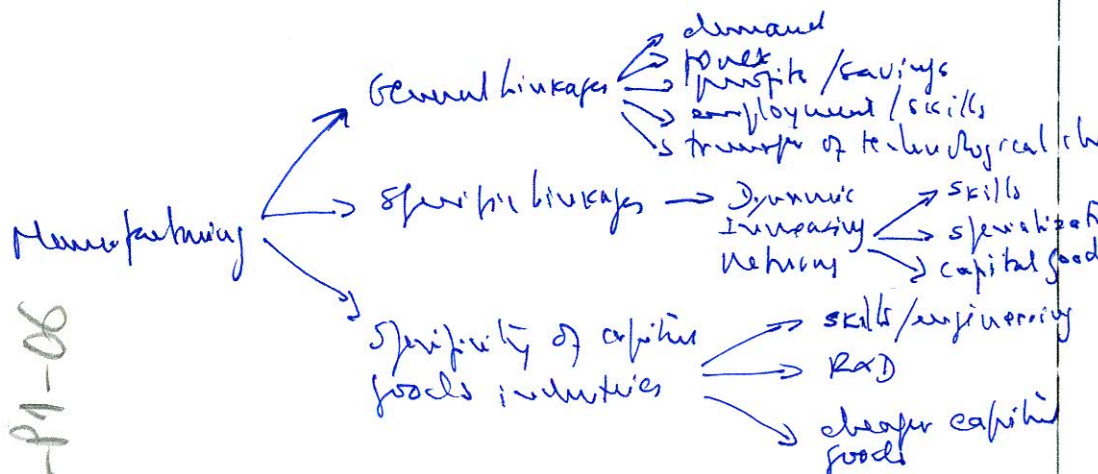 demand
General Linkages
profits/savings
employment/skills
transfer of technological
Manufacturing
Specific Linkages
Dynamic
Increasing
Returns
skills
capital good
Specificity of capital
goods industries
skills/engineering
R&D
cheaper capital
goods
-P1-06